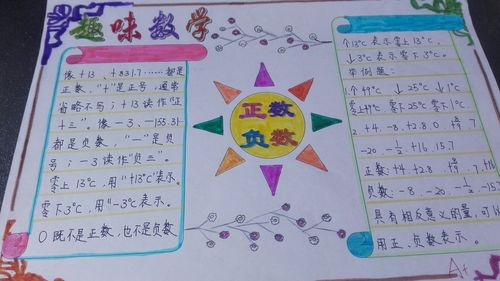 趣味数学
像+13、+8317……都是
正数，"+"是正号，通常
省略不写；+13读作"正
十三"。像-3、-155.31
都是负数，"-"是负
号；-3读作"负三"。
零上13℃，用"+13℃"表示。
零下3℃，用"-3℃表示。
0既不是正数，也不是负数
正数
负数
个13℃表示零上13℃，
↓3℃表示零下3℃。
举例题：
1.个49℃ ↓25℃ ↓1℃
零上49℃ 零下25℃ 零下1℃
2.+4.-8.+2.8.0
-20 +16.15.7
正数：+4.+2.8
负数：-8.-20
具有相反意义的量，可以
用正、负数表示。
A+